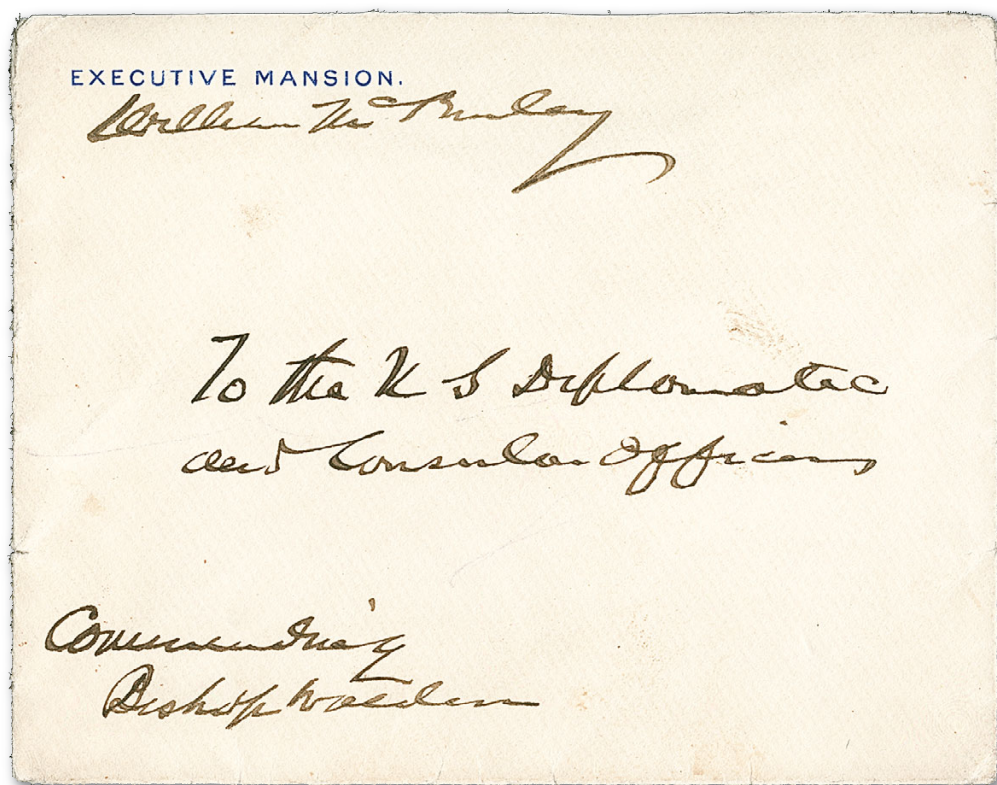 EXECUTIVE MANSION.
William McKinley
To the U S Diplomatic
and Consular Officers
Commending
Bishop Walden